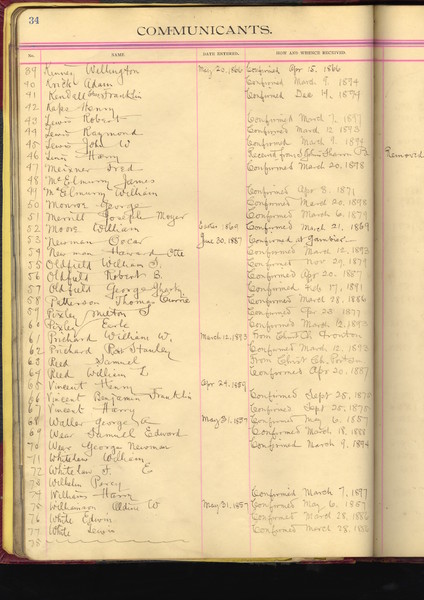 34
COMMUNICANTS.
No. NAME DATE ENTERED. HOW AND WHENCE RECEIVED.
39 Kinney Wellington May 20, 1866 Confirmed Apr 15, 1866
40 Krick Adam Confirmed March 9, 1894
41 Kendall Franklin Confirmed Dec 14, 1894
42 Henry
43 Lewis Robert Confirmed March 7, 1897
44 Lewis Raymond Confirmed March 12, 1893
45 Lewis John W Confirmed March 9, 1894
46 Lewis Harry Removed
47 Meixner Fred Confirmed March 20, 1898
48 McElmurry James
49 McElmurry William Confirmed Apr 8, 1871
50 Monroe George Confirmed March 20, 1898
51 Merrill Joseph Moyer Confirmed March 6, 1879
52 Moore William Easter 1869 Confirmed March 21, 1869
53 Newman Oscar June 30, 1887 Confirmed at Gambier
54 Newman Howard Confirmed March 12, 1893
55 Oldfield William Confirmed Nov 29, 1879
56 Oldfield Robert S. Confirmed Apr 20, 1887
57 Oldfield George Confirmed Feb 17, 1891
58 Patterson Thomas Currie Confirmed March 28, 1886
59 Pixley Milton Confirmed 1877
60 Pixley Earle Confirmed March 12, 1893
61 Prichard William W. March 12, 1893 From Christ Ch. Ironton
62 Prichard Stanley Confirmed March 12, 1893
63 Reed Samuel From Christ Ch.
64 Reed William L. Confirmed Apr 20, 1887
65 Vincent Henry Apr 24, 1859
66 Vincent Benjamin Franklin Confirmed Sept 25, 1870
67 Vincent Harry Confirmed Sept 20, 1875
68 Waller George A May 31, 1857 Confirmed May 6, 1857
69 Wear Samuel Edward Confirmed March 18, 1888
70 Wear George Newman Confirmed March 9, 1894
71 Whitelaw William
72 Whitelaw E
73 Wilhelm Percy
74 Williams Harry Confirmed March 7, 1897
75 Williamson W May 31, 1857 Confirmed May 6, 1857
76 White Edwin Confirmed March 28, 1886
77 White Lewis Confirmed March 28, 1886
78